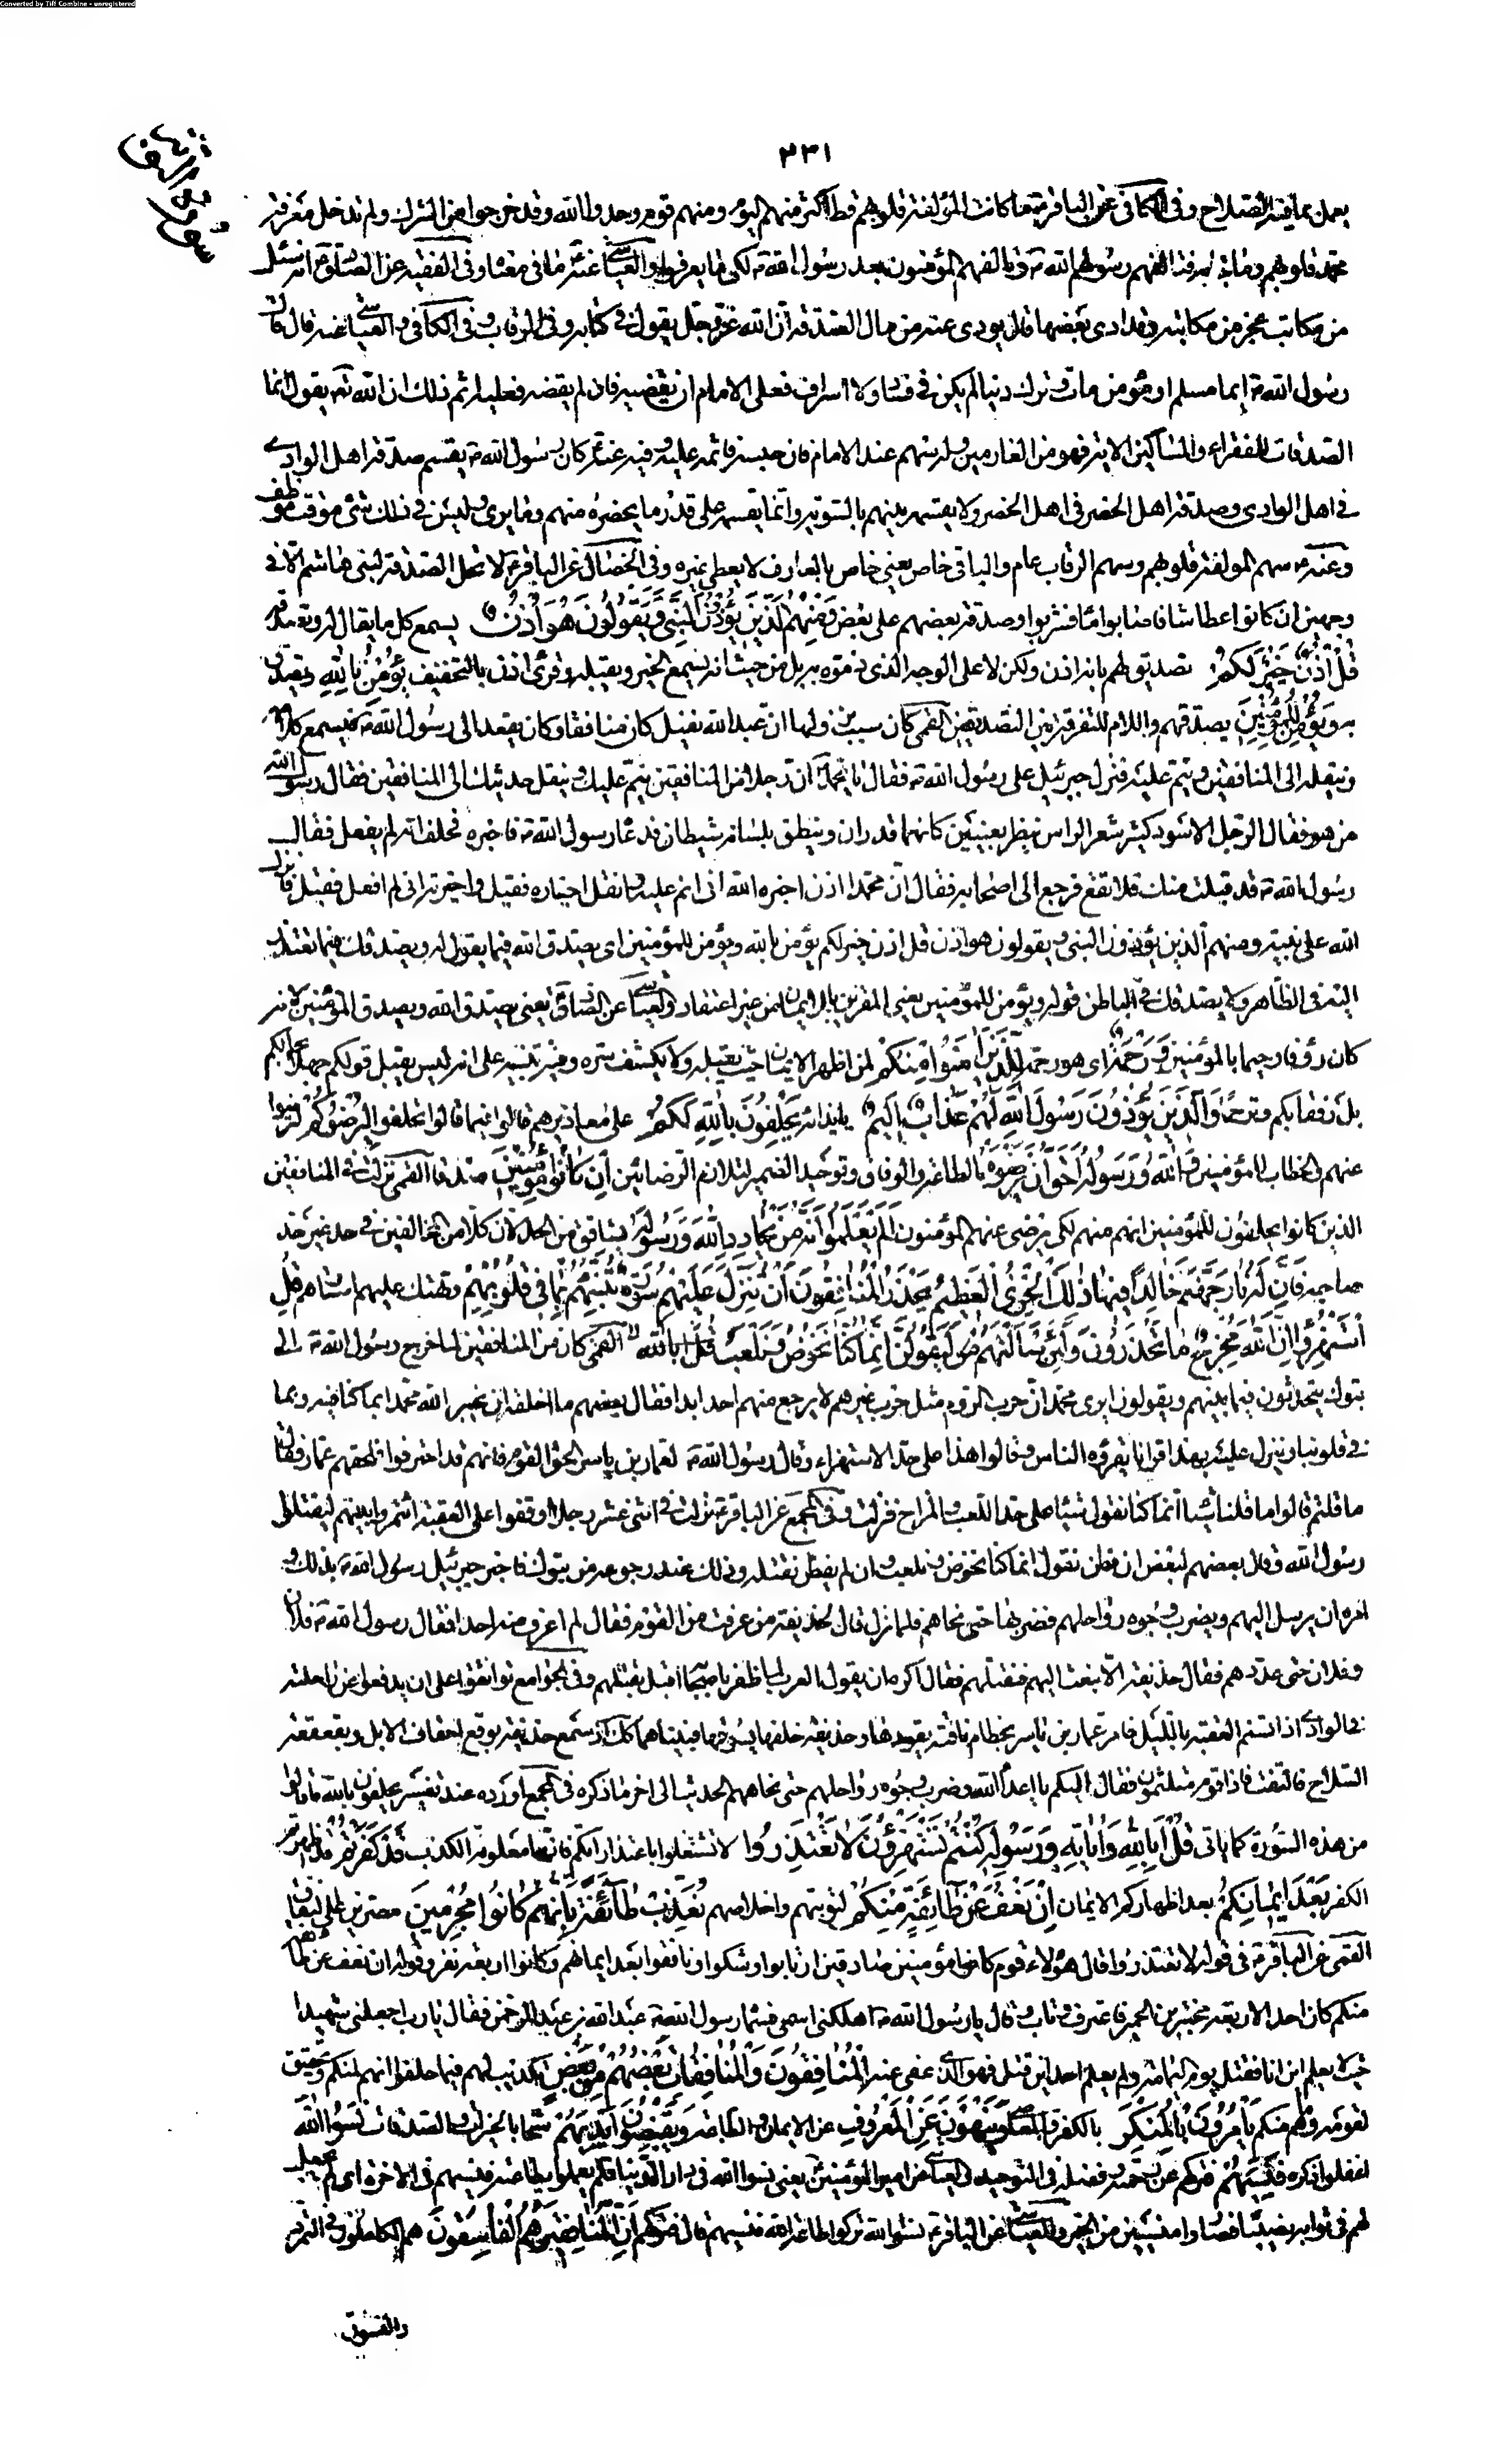 Converted by Tiff Combine - unregistered
٣٣١
يعمل بما فيه الصلاح وفى الكافى عن الباقر ع ما كانت المؤلفة قلوبهم قط اكثر منهم اليوم ومنهم قوم وحدوا الله وقد خرجوا من الشرك ولم تدخل معرفة
محمد قلوبهم وما جاء به فتالفهم رسول الله ص وتالفهم المؤمنون بعد رسول الله ص لكى ما يعرفوا والعياشى عنه ع ما فى معناه وفى الفقيه عن الصادق ع انه سئل
من مكاتب عجز من مكاتبته وقد ادى بعضها قال يودى عنه من مال الصدقة ان الله عز وجل يقول فى كتابه وفى الرقاب وفى الكافى والعياشى عنه قال قال
رسول الله ص ايما مسلم او مؤمن مات وترك دينا لم يكن فى فساد ولا اسراف فعلى الامام ان يقضيه فان لم يقضه فعليه اثم ذلك ان الله تع يقول انما
الصدقات للفقراء والمساكين الاية فهو من الغارمين وله سهم عند الامام فان حبسه فاثمه عليه وفيه عنه ع كان رسول الله ص يقسم صدقة اهل الوادى
فى اهل الوادى وصدقة اهل الحضر فى اهل الحضر ولا يقسم بينهم بالسوية وانما يقسم على قدر ما يحضره منهم وما يرى وليس فى ذلك شئ موقت موظف
وعنه ع سهم المولفة قلوبهم وسهم الرقاب عام والباقى خاص يعنى خاص بالعارف لا يعطى غيره وفى الخصال عن الباقر ع لا تحل الصدقة لبنى هاشم الا فى
وجهين ان كانوا عطاشا فاصابوا ماء فشربوا وصدقة بعضهم على بعض وَمِنْهُمُ الَّذِينَ يُؤْذُونَ النَّبِيَّ وَيَقُولُونَ هُوَ أُذُنٌ يسمع كل ما يقال له ويصدقه
قُلْ أُذُنُ خَيْرٍ لَكُمْ تصديق لهم بانه اذن ولكن لا على الوجه الذى ذموه به بل من حيث انه يسمع الخير ويقبله وقرئ اذن بالتخفيف يُؤْمِنُ بِاللَّهِ يصدق
به وَيُؤْمِنُ لِلْمُؤْمِنِينَ يصدقهم واللام للتفرقة بين التصديقين القمى كان سبب نزولها ان عبد الله بن نفيل كان منافقا وكان يقعد الى رسول الله ص فيسمع كلامه
وينقله الى المنافقين وينم عليه فنزل جبرئيل على رسول الله ص فقال يا محمد ان رجلا من المنافقين ينم عليك وينقل حديثك الى المنافقين فقال رسول الله
من هو فقال الرجل الاسود كثير شعر الراس ينظر بعينين كانهما قدران وينطق بلسان شيطان فدعا رسول الله ص فاخبره فحلف انه لم يفعل فقال
رسول الله ص قد قبلت منك فلا تقع فرجع الى اصحابه فقال ان محمدا اذن اخبره الله انى انم عليه وانقل اخباره فقبل واخبرته انى لم افعل فقبل فانزل
الله على نبيه ومنهم الذين يؤذون النبى ويقولون هو اذن قل اذن خير لكم يؤمن بالله ويؤمن للمؤمنين اى يصدق الله فيما يقول له ويصدقك فيما تعتذر
اليه فى الظاهر ولا يصدقك فى الباطن قوله ويؤمن للمؤمنين يعنى المقرين بالايمان من غير اعتقاد والعياشى عن الصادق ع يعنى يصدق الله ويصدق المؤمنين لانه
كان رؤفا رحيما بالمؤمنين وَرَحْمَةٌ اى هو رحمة لِلَّذِينَ آمَنُوا مِنْكُمْ لمن اظهر الايمان حيث يقبله ولا يكشف سره وفيه تنبيه على انه ليس يقبل قولكم جهلا بحالكم
بل رفقا بكم وترحما وَالَّذِينَ يُؤْذُونَ رَسُولَ اللَّهِ لَهُمْ عَذَابٌ أَلِيمٌ بايذائه يَحْلِفُونَ بِاللَّهِ لَكُمْ على معاذيرهم فيما قالوا او تخلفوا لِيُرْضُوكُمْ لترضوا
عنهم والخطاب للمؤمنين وَاللَّهُ وَرَسُولُهُ أَحَقُّ أَنْ يُرْضُوهُ بالطاعة والوفاق وتوحيد الضمير لتلازم الرضائين إِنْ كَانُوا مُؤْمِنِينَ صدقا القمى نزلت فى المنافقين
الذين كانوا يحلفون للمؤمنين انهم منهم لكى يرضى عنهم المؤمنون أَلَمْ يَعْلَمُوا أَنَّهُ مَنْ يُحَادِدِ اللَّهَ وَرَسُولَهُ يشاقق من الحد لان كلا من المخالفين فى حد غير حد
صاحبه فَأَنَّ لَهُ نَارَ جَهَنَّمَ خَالِدًا فِيهَا ذَلِكَ الْخِزْيُ الْعَظِيمُ يَحْذَرُ الْمُنَافِقُونَ أَنْ تُنَزَّلَ عَلَيْهِمْ سُورَةٌ تُنَبِّئُهُمْ بِمَا فِي قُلُوبِهِمْ وتهتك عليهم استارهم قُلِ
اسْتَهْزِؤُا إِنَّ اللَّهَ مُخْرِجٌ مَا تَحْذَرُونَ وَلَئِنْ سَأَلْتَهُمْ لَيَقُولُنَّ إِنَّمَا كُنَّا نَخُوضُ وَنَلْعَبُ قُلْ أَبِاللَّهِ القمى كان من المنافقين لما خرج رسول الله ص الى
تبوك يتحدثون فيما بينهم ويقولون ايرى محمد ان حرب الروم مثل حرب غيرهم لا يرجع منهم احد ابدا فقال بعضهم ما اخلفه ان يخبر الله محمدا بما كنا فيه وبما
فى قلوبنا وينزل عليه بهذا قرانا يقرؤه الناس وقالوا هذا على حد الاستهزاء وقال رسول الله ص لعمار بن ياسر الحق القوم فانهم قد احترقوا فلحقهم عمار فقال
ما قلتم قالوا ما قلنا شيئا انما كنا نقول شيئا على حد اللعب والمزاح فنزلت وفى المجمع عن الباقر ع نزلت فى اثنى عشر رجلا وقفوا على العقبة ائتمروا بينهم ليقتلوا
رسول الله وقال بعضهم لبعض ان فطن نقول انما كنا نخوض ونلعب وان لم يفطن نقتله وذلك عند رجوعه من تبوك فاخبر جبرئيل رسول الله ص بذلك و
امره ان يرسل اليهم ويضرب وجوه رواحلهم فضربها حتى نحاهم فلما نزل قال لحذيفة من عرفت من القوم فقال لم اعرف منهم احدا فقال رسول الله ص فلان
وفلان حتى عددهم فقال حذيفة الا تبعث اليهم فتقتلهم فقال اكره ان يقول العرب لما ظفر باصحابه اقبل يقتلهم وفى الجوامع تواثقوا على ان يدفعوه عن راحلته
فى الوادى اذا تسنم العقبة بالليل فامر عمار بن ياسر بخطام ناقته يقودها وحذيفة خلفها يسوقها فبينا هما كذلك اذ سمع حذيفة بوقع اخفاف الابل وبقعقعة
السلاح فالتفت فاذا قوم متلثمون فقال اليكم يا اعداء الله وضرب وجوه رواحلهم حتى نحاهم الحديث الى اخر ما ذكره فى المجمع اورده عند تفسير يحلفون بالله ما قالوا
من هذه السورة كما ياتى قُلْ أَبِاللَّهِ وَآيَاتِهِ وَرَسُولِهِ كُنْتُمْ تَسْتَهْزِؤُنَ لَا تَعْتَذِرُوا لا تشتغلوا باعتذاراتكم فانها معلومة الكذب قَدْ كَفَرْتُمْ قد اظهرتم
الكفر بَعْدَ إِيمَانِكُمْ بعد اظهاركم الايمان إِنْ نَعْفُ عَنْ طَائِفَةٍ مِنْكُمْ لتوبتهم واخلاصهم نُعَذِّبْ طَائِفَةً بِأَنَّهُمْ كَانُوا مُجْرِمِينَ مصرين على النفاق
القمى عن الباقر ع فى قوله لا تعتذروا قال هؤلاء قوم كانوا مؤمنين صادقين ارتابوا وشكوا ونافقوا بعد ايمانهم وكانوا اربعة نفر وقوله ان نعف عن طائفة
منكم كان احد الاربعة مختبر بن الحمير فاعترف وتاب وقال يا رسول الله ص اهلكنى اسمى فسماه رسول الله ص عبد الله بن عبد الرحمن فقال يا رب اجعلنى شهيدا
حيث لا يعلم اين انا فقتل يوم اليمامة ولم يعلم احد اين قتل فهو الذى عفى عنه الْمُنَافِقُونَ وَالْمُنَافِقَاتُ بَعْضُهُمْ مِنْ بَعْضٍ تكذيب لهم فيما حلفوا انهم لمنكم وتحقيق
لقوله وما هم منكم يَأْمُرُونَ بِالْمُنْكَرِ بالكفر والمعاصى وَيَنْهَوْنَ عَنِ الْمَعْرُوفِ عن الايمان والطاعة وَيَقْبِضُونَ أَيْدِيَهُمْ شحا بالخيرات والصدقات نَسُوا اللَّهَ
اغفلوا ذكره فَنَسِيَهُمْ فتركهم عن رحمته وفضله فى التوحيد والعياشى عن امير المؤمنين يعنى نسوا الله فى دار الدنيا فلم يعملوا بطاعته فنسيهم فى الاخرة اى لم يجعل
لهم فى ثوابه نصيبا فصاروا منسيين من الخير والعياشى عن الباقر ع نسوا الله تركوا طاعة الله فنسيهم قال فتركهم إِنَّ الْمُنَافِقِينَ هُمُ الْفَاسِقُونَ هم الكاملون فى التمرد
والفسوق